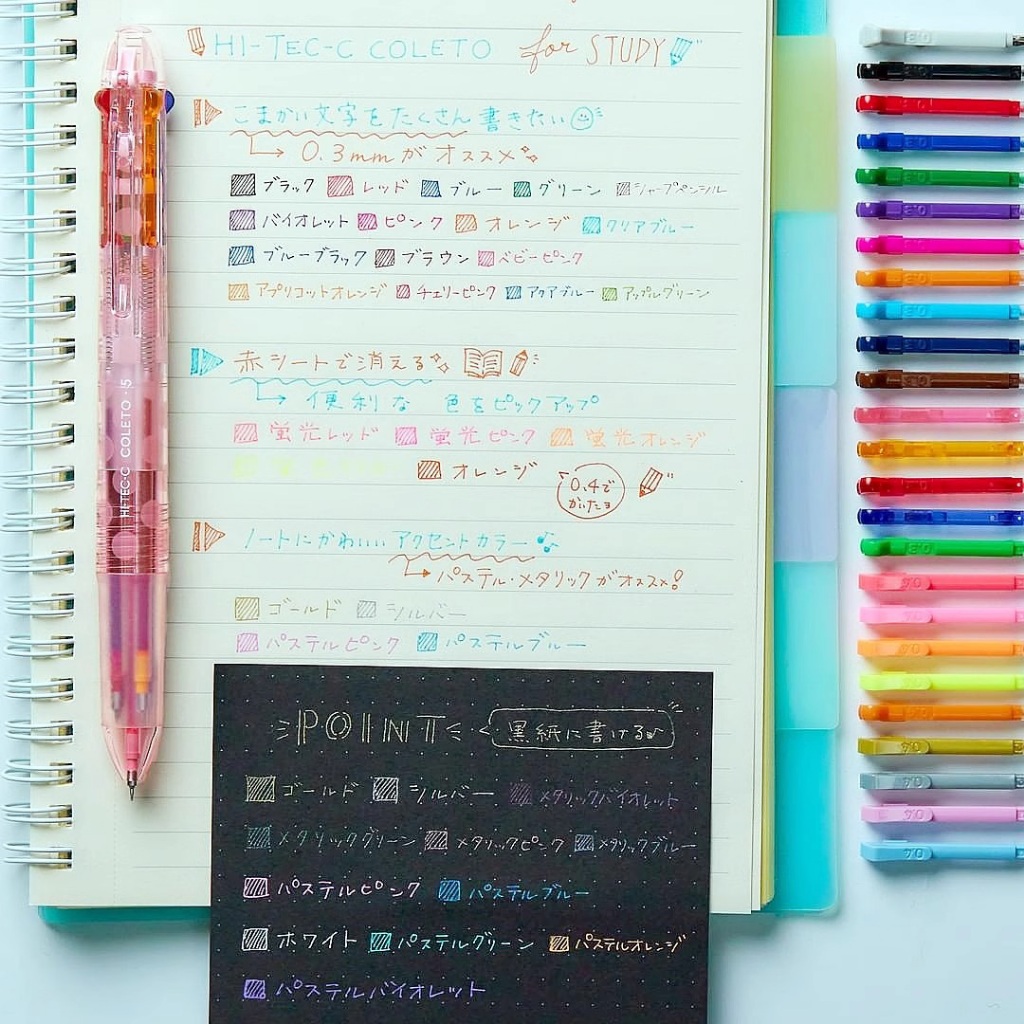 HI-TEC-C COLETO for STUDY
こまかい文字をたくさん書きたい
0.3mmがオススメ
ブラック レッド ブルー グリーン シャープペンシル
バイオレット ピンク オレンジ クリアブルー
ブルーブラック ブラウン ベビーピンク
アプリコットオレンジ チェリーピンク アクアブルー アップルグリーン
赤シートで消える
便利な 色をピックアップ
蛍光レッド 蛍光ピンク 蛍光オレンジ
オレンジ
0.4で
かいたョ
ノートにかわいいアクセントカラー
パステル・メタリックがオススメ!
ゴールド シルバー
パステルピンク パステルブルー
POINT 黒紙に書ける
ゴールド シルバー メタリックバイオレット
メタリックグリーン メタリックピンク メタリックブルー
パステルピンク パステルブルー
ホワイト パステルグリーン パステルオレンジ
パステルバイオレット
HI-TEC-C COLETO